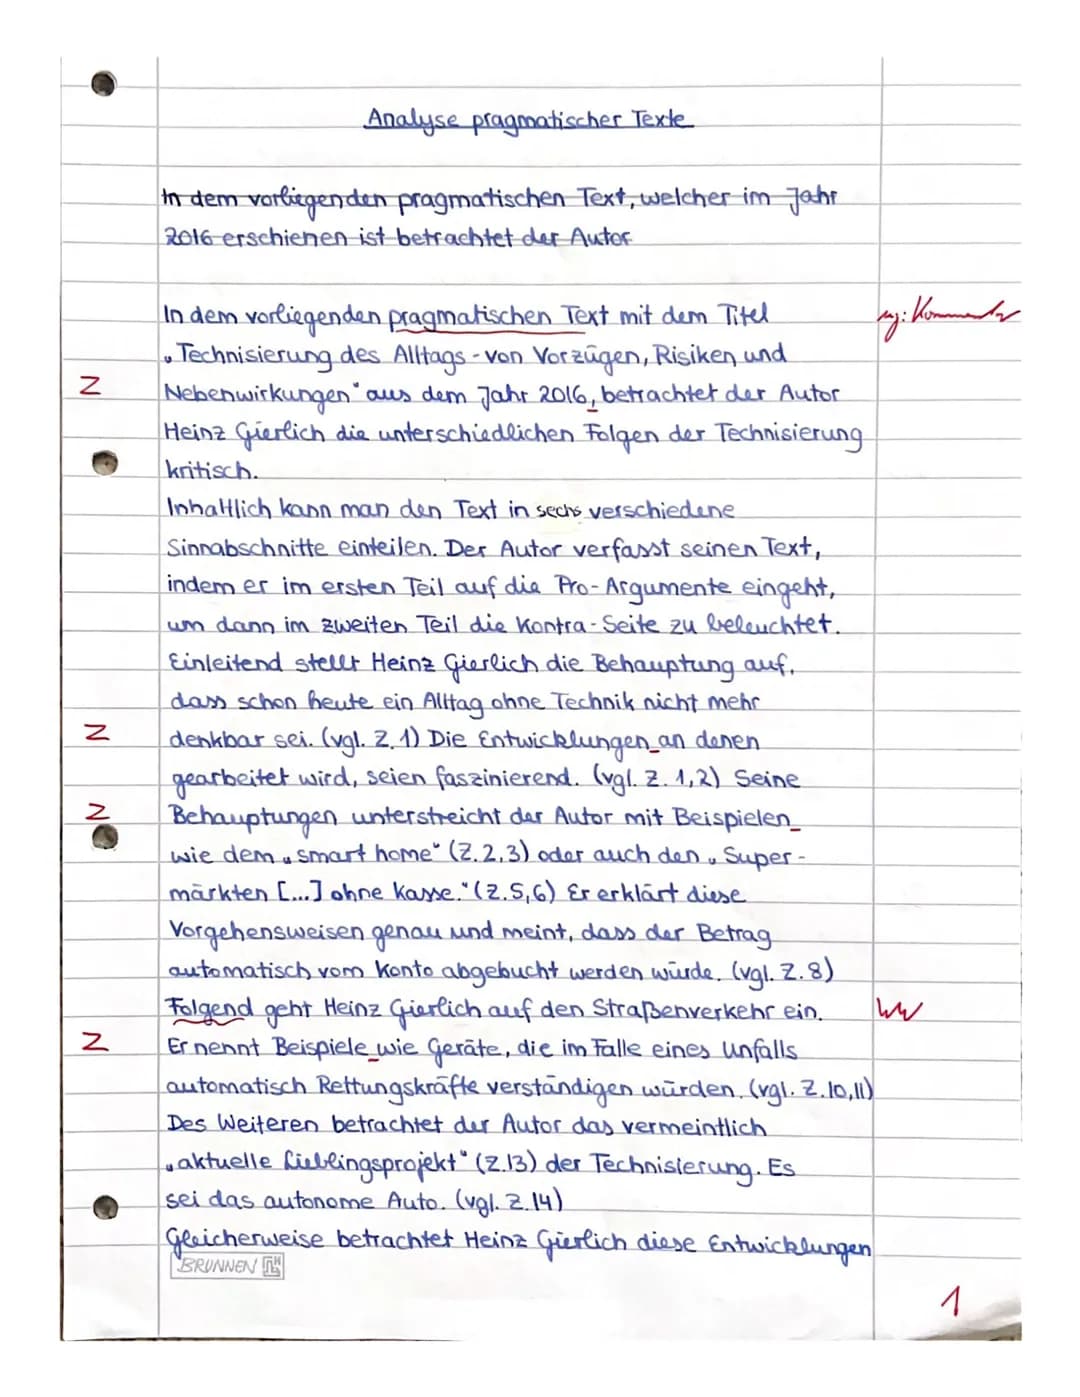 Analyse pragmatischer Texte
In dem vorliegenden pragmatischen Text, welcher im Jahr
2016 erschienen ist betrachtet der Autor
In dem vorliegenden pragmatischen Text mit dem Titel
„Technisierung des Alltags - von Vorzügen, Risiken und
Z
Nebenwirkungen" aus dem Jahr 2016, betrachtet der Autor
Heinz Gierlich die unterschiedlichen Folgen der Technisierung
kritisch.
Inhaltlich kann man den Text in sechs verschiedene
Sinnabschnitte einteilen. Der Autor verfasst seinen Text,
indem er im ersten Teil auf die Pro-Argumente eingeht,
um dann im zweiten Teil die Kontra-Seite zu beleuchtet.
Einleitend stellt Heinz Gierlich die Behauptung auf,
dass schon heute ein Alltag ohne Technik nicht mehr
Z
denkbar sei. (vgl. Z. 1) Die Entwicklungen an denen
gearbeitet wird, seien faszinierend. (vgl. Z. 1,2) Seine
Z
Behauptungen unterstreicht der Autor mit Beispielen
wie dem „smart home" (Z.2,3) oder auch den „Super-
märkten [...] ohne Kasse." (Z.5,6) Er erklärt diese
Vorgehensweisen genau und meint, dass der Betrag
automatisch vom Konto abgebucht werden würde. (vgl. Z.8)
Folgend geht Heinz Gierlich auf den Straßenverkehr ein.
Z
Er nennt Beispiele wie Geräte, die im Falle eines Unfalls
automatisch Rettungskräfte verständigen würden. (vgl. Z.10,11)
Des Weiteren betrachtet der Autor das vermeintlich
„aktuelle Lieblingsprojekt" (Z.13) der Technisierung. Es
sei das autonome Auto. (vgl. Z.14)
Gleicherweise betrachtet Heinz Gierlich diese Entwicklungen
BRUNNEN
1